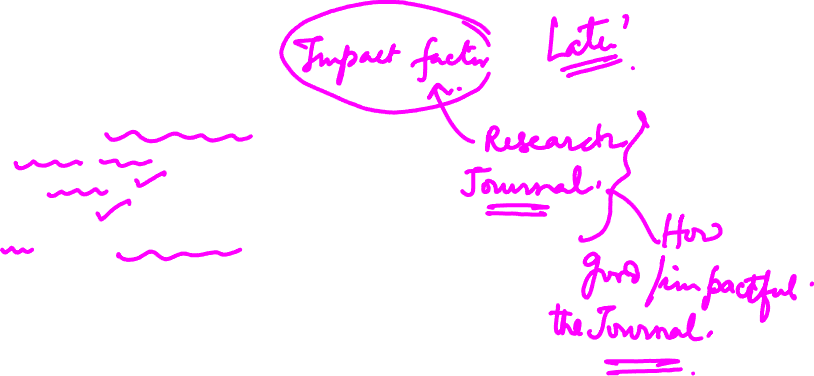 Impact factor
Late'.
Research
Journal.
How
good/impactful.
the Journal.